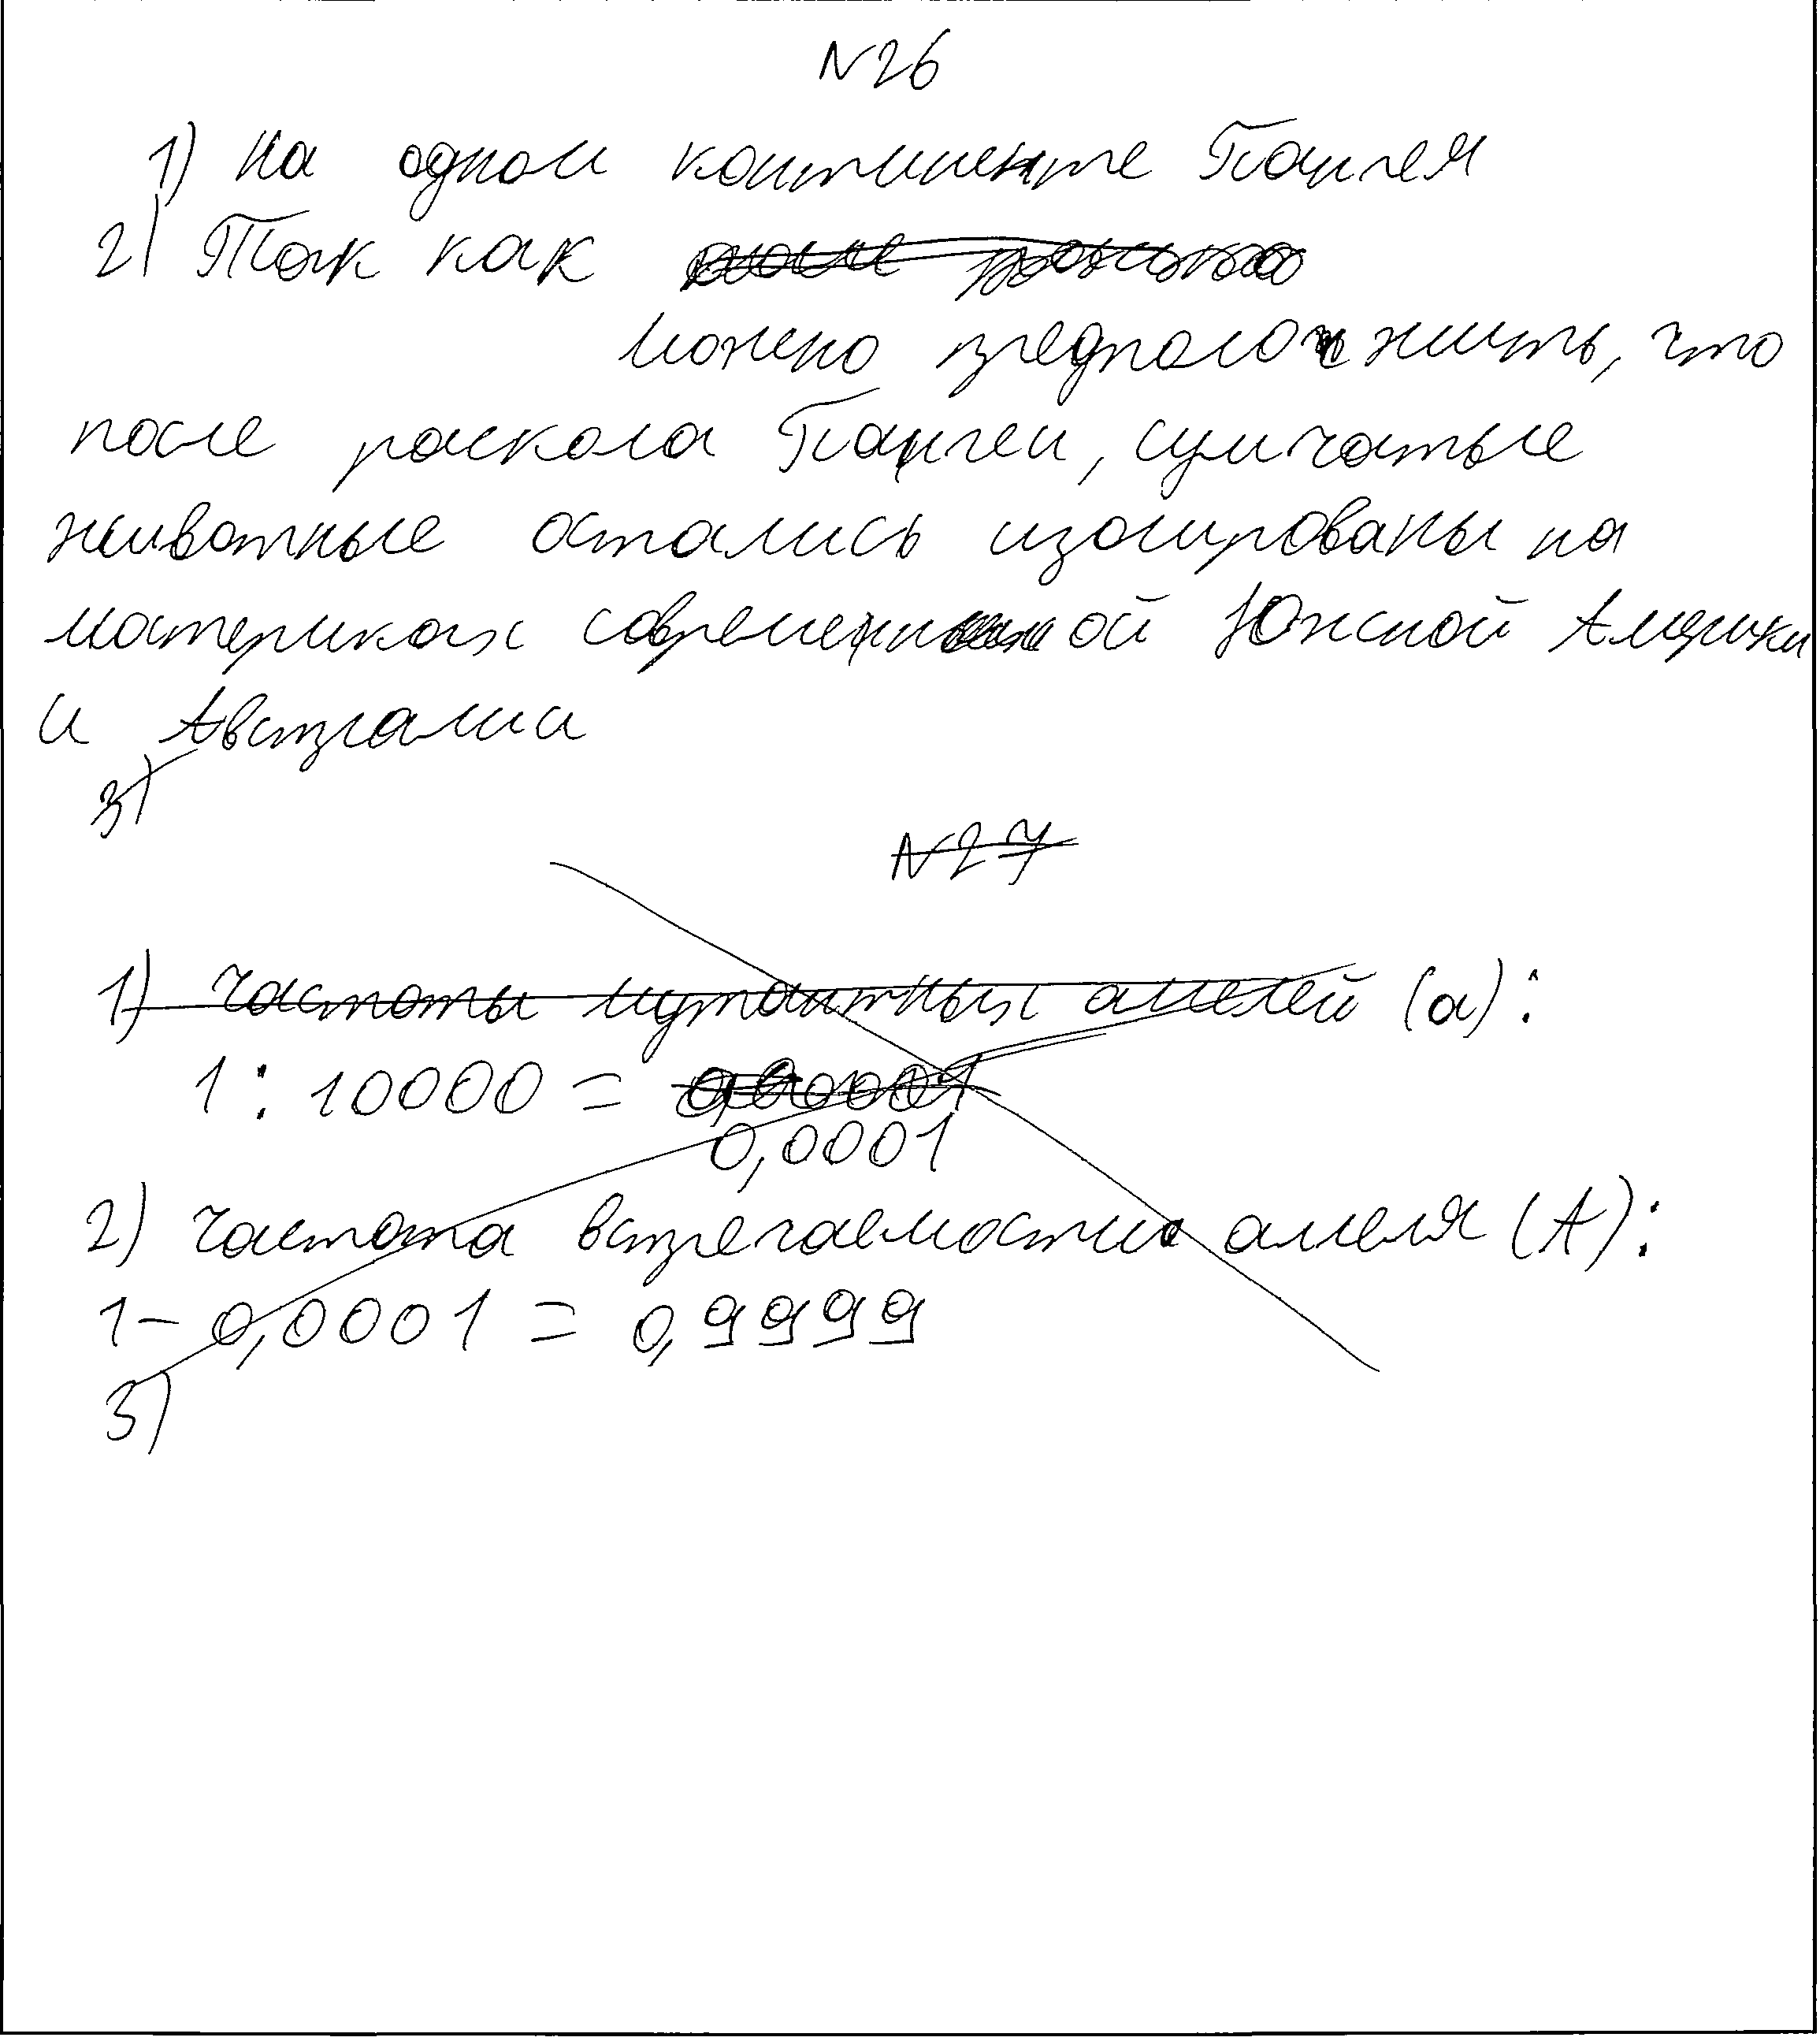 N26
1) На одном континенте Пангея
2) Так как
можно предположить, что
после раскола Пангеи, сумчатые
животные остались изолированы на
материках современной Южной Америки
и Австралии
3)
N27
1) Частоты мутантных аллелей (а):
1 : 10000 = 0,00001
0,0001
2) Частота встречаемости аллеля (А):
1 - 0,0001 = 0,9999
3)